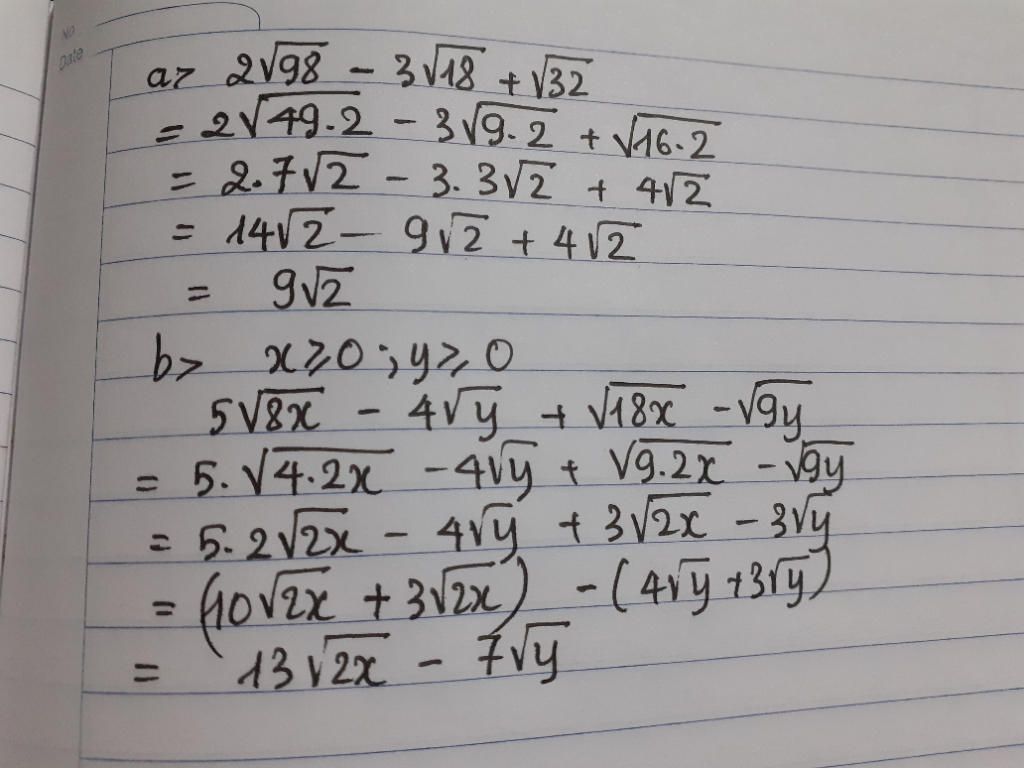 No
Date
a> 2√98 - 3√18 + √32
= 2√49.2 - 3√9.2 + √16.2
= 2.7√2 - 3.3√2 + 4√2
= 14√2 - 9√2 + 4√2
= 9√2
b> x≥0 ; y≥0
5√8x - 4√y + √18x - √9y
= 5.√4.2x - 4√y + √9.2x - √9y
= 5.2√2x - 4√y + 3√2x - 3√y
= (10√2x + 3√2x) - (4√y + 3√y)
= 13√2x - 7√y